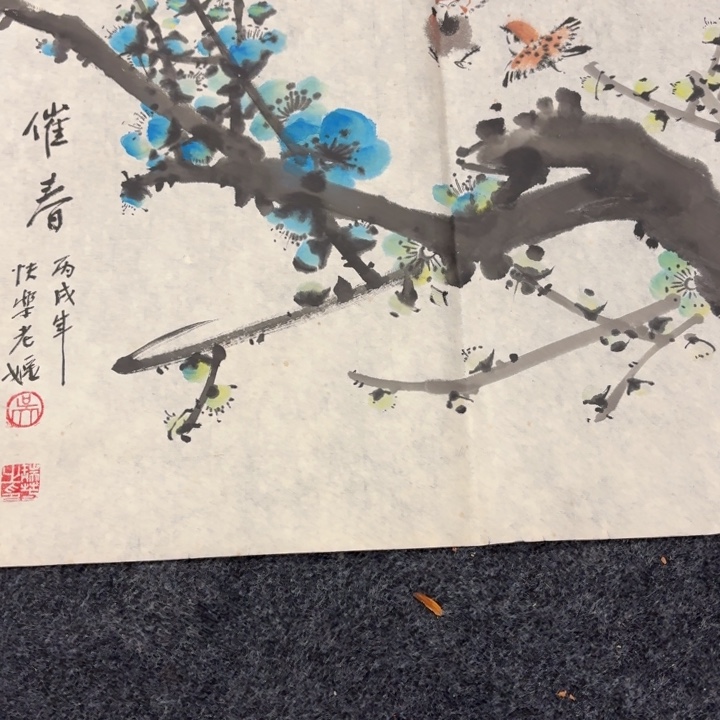 催春
丙戌年
快樂老嫗